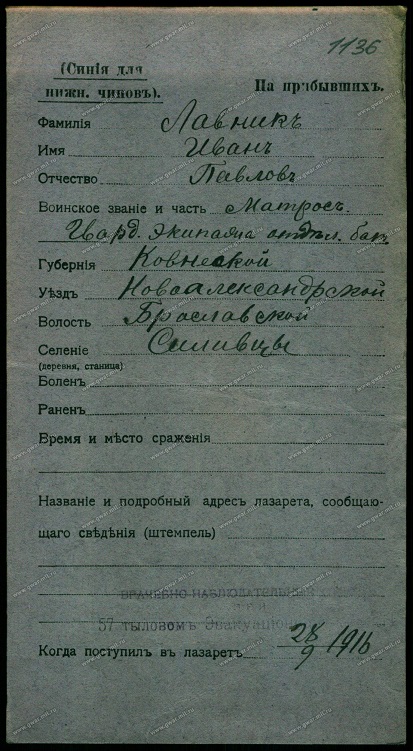 1136
(Синія для
нижн. чиновъ).
На прибывшихъ.
Фамилія Лавникъ
Имя Иванъ
Отчество Павловъ
Воинское званіе и часть Матросъ
Гвард. Экипажа отдѣл. бат.
Губернія Ковнеской
Уѣздъ Новоалександрской
Волость Брославской
Селеніе Силивцы
(деревня, станица)
Боленъ
Раненъ
Время и мѣсто сраженія
Названіе и подробный адресъ лазарета, сообщаю-
щаго свѣдѣнія (штемпель)
ВРАЧЕБНО НАБЛЮДАТЕЛЬНАЯ
ПРИ
57 тыловомъ Эвакуаціон
Когда поступилъ въ лазаретъ 28/9 1916
www.gwar.mil.ru